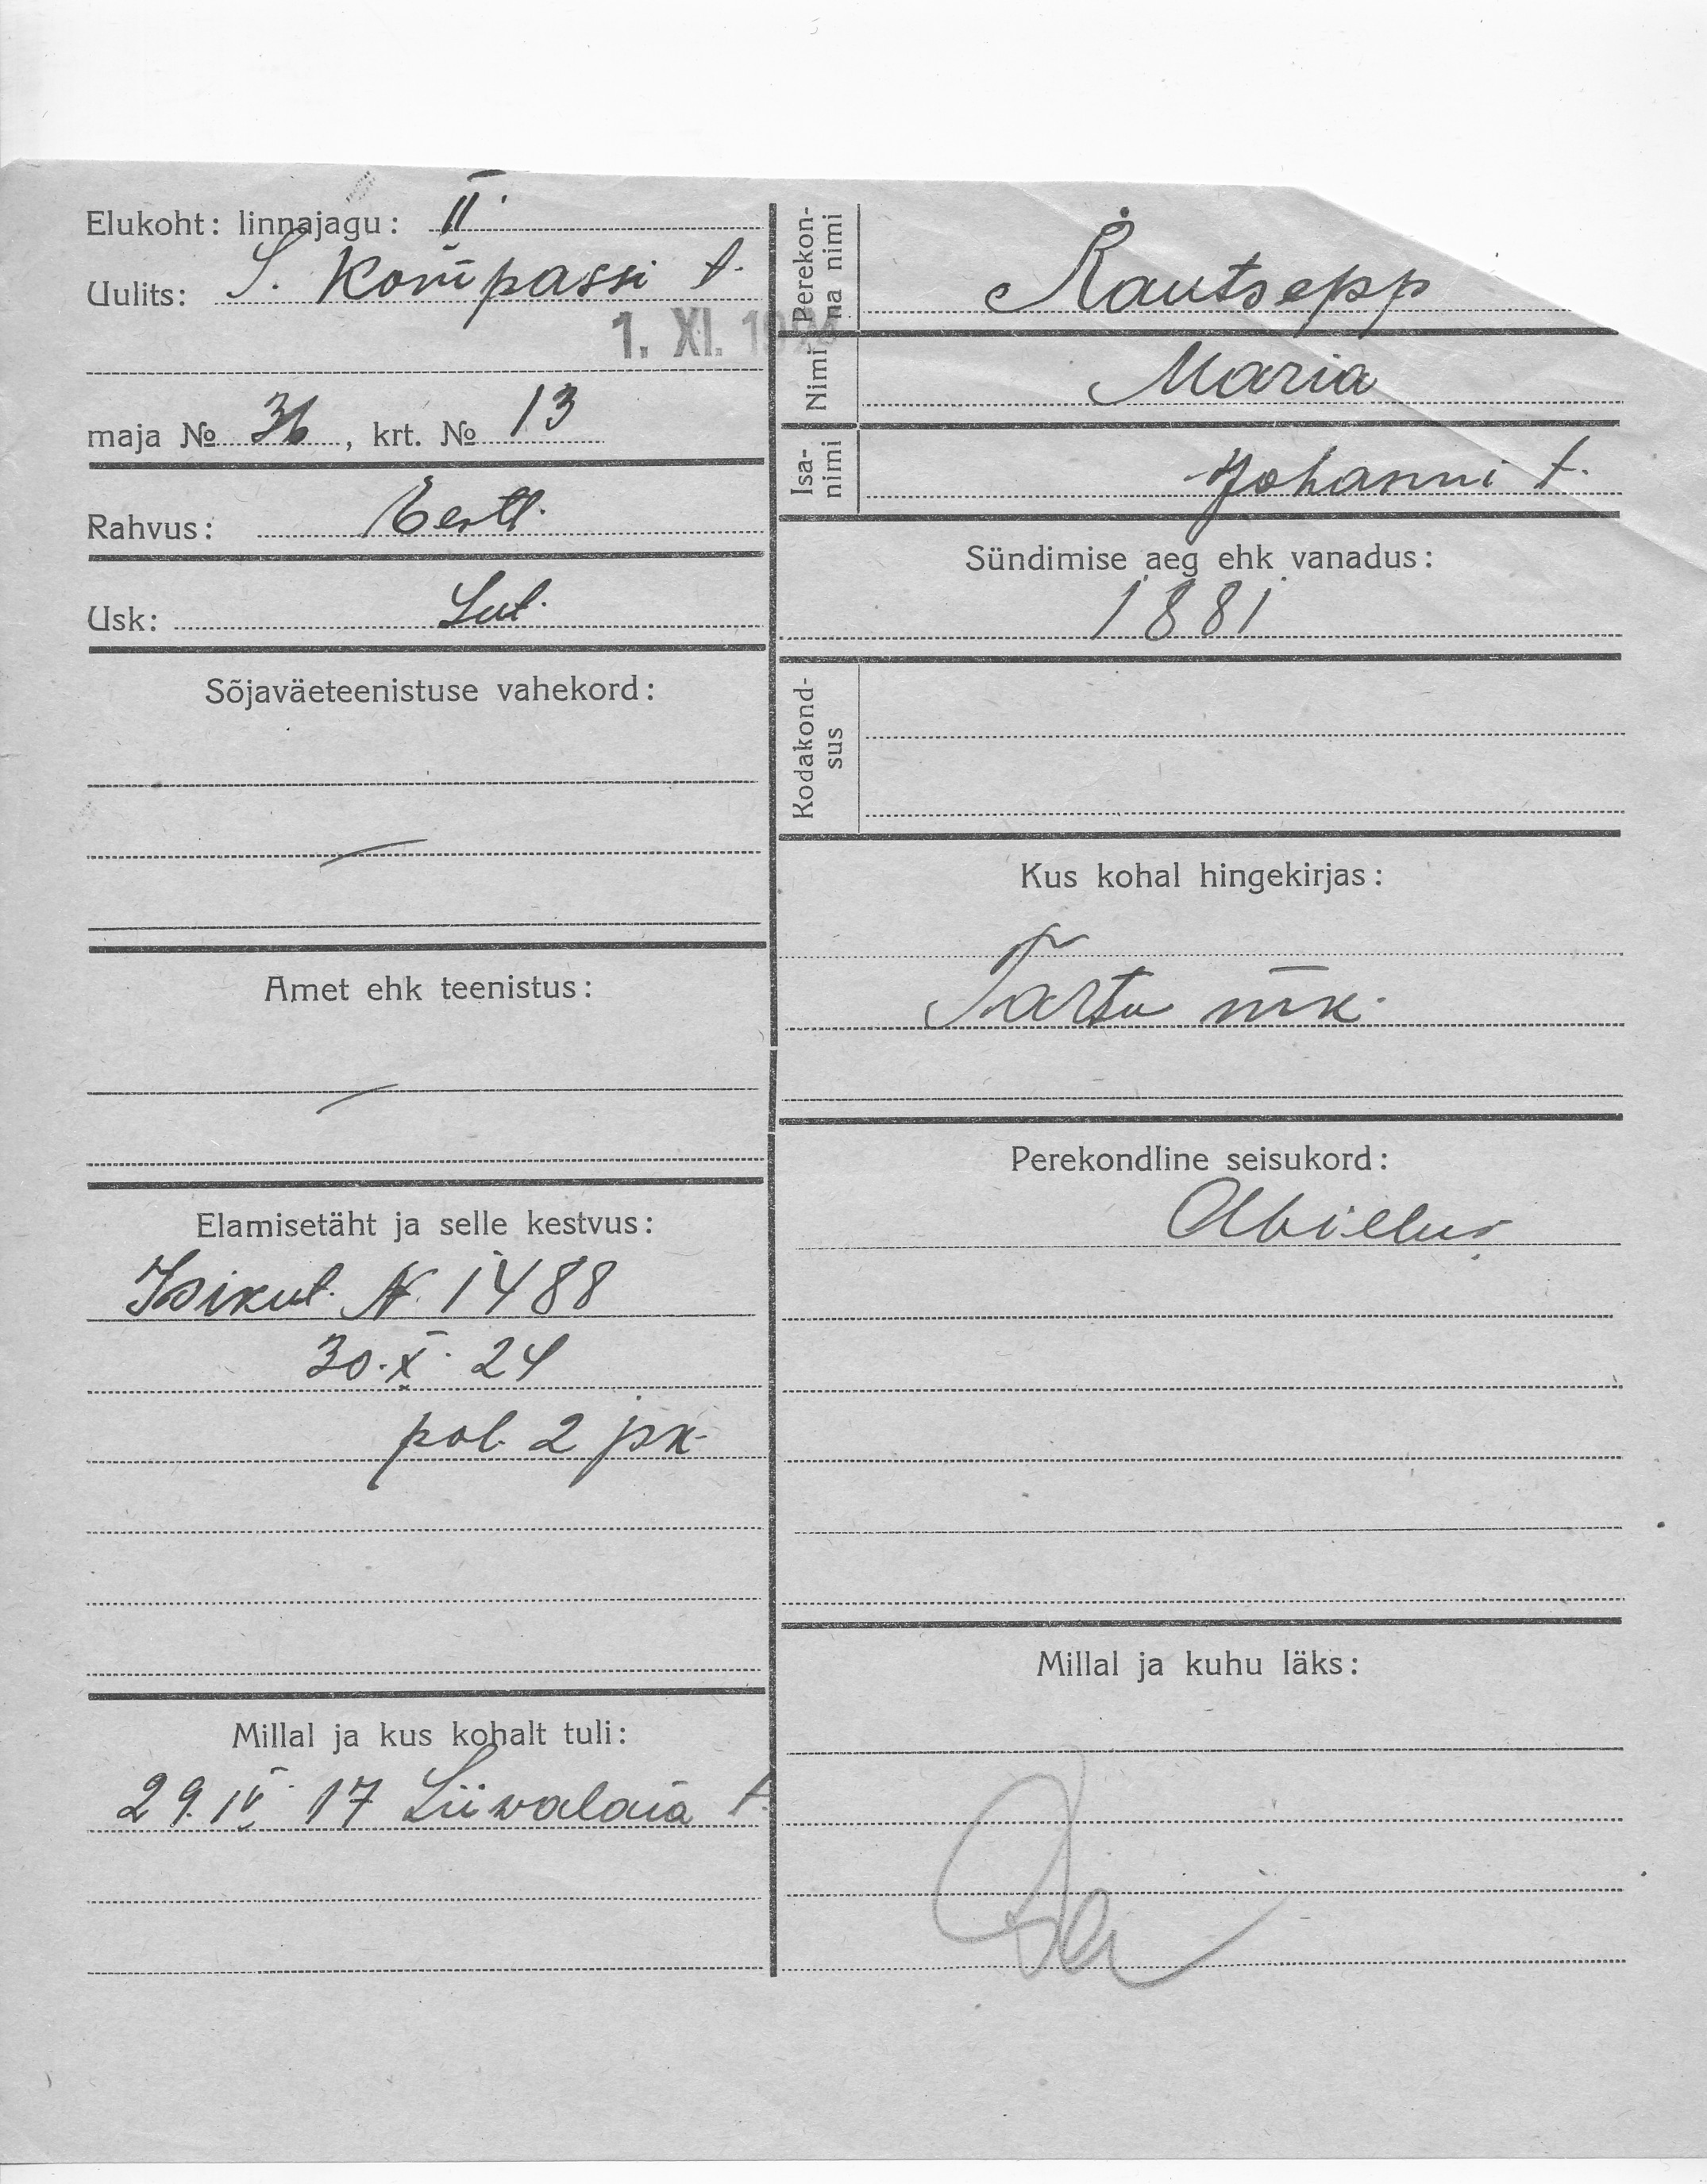 Elukoht: linnajagu: II.
Uulits: S. Kompassi t.
1. XI. 1924
maja № 36, krt. № 13
Rahvus: Eestl.
Usk: Lut.
Sõjaväeteenistuse vahekord:
Amet ehk teenistus:
Elamisetäht ja selle kestvus:
Isikut. N. 1488
30. X. 24
pol. 2 jsk.
Millal ja kus kohalt tuli:
29. IV. 17 Liiwalaia t.
Perekonna nimi
Rautsepp
Nimi
Maria
Isanimi
Johanni t.
Sündimise aeg ehk vanadus:
1881
Kodakondsus
Kus kohal hingekirjas:
Tartu mk.
Perekondline seisukord:
Abielus
Millal ja kuhu läks: